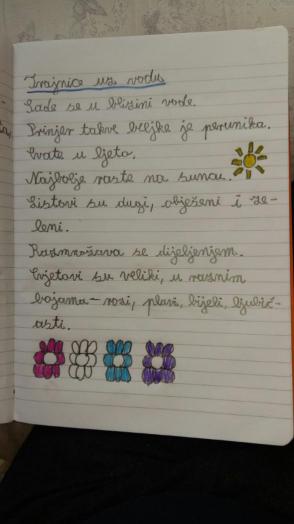 Trajnice uz vodu
Sade se u blizini vode.
Primjer takve biljke je perunika.
Cvate u ljeto.
Najbolje raste na suncu.
Listovi su dugi, obješeni i ze-
leni.
Razmnožava se dijeljenjem.
Cvjetovi su veliki, u raznim
bojama - rozi, plavi, bijeli, ljubič-
asti.